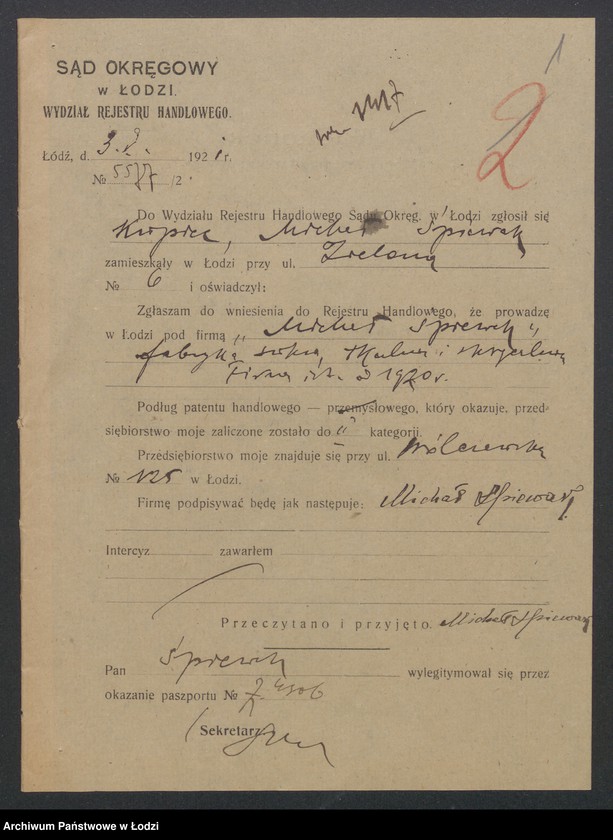 1
2
SĄD OKRĘGOWY
W ŁODZI.
WYDZIAŁ REJESTRU HANDLOWEGO.
Łódź, d. 192 r.
№ /2
Do Wydziału Rejestru Handlowego Sądu Okręg. w Łodzi zgłosił się
Kupiec, Michał Śpiewak
zamieszkały w Łodzi przy ul. Zieloną
№ 6 i oświadczył:
Zgłaszam do wniesienia do Rejestru Handlowego, że prowadzę
w Łodzi pod firmą „Michał Śpiewak”,
fabrykę
Firma 1920 r.
Podług patentu handlowego — przemysłowego, który okazuje, przed-
siębiorstwo moje zaliczone zostało do II kategorji.
Przedsiębiorstwo moje znajduje się przy ul. Wólczańską
№ 125 w Łodzi.
Firmę podpisywać będę jak następuje: Michał Śpiewak
Intercyz zawarłem
Przeczytano i przyjęto. Michał Śpiewak
Pan Śpiewak wylegitymował się przez
okazanie paszportu №
Sekretarz
Archiwum Państwowe w Łodzi